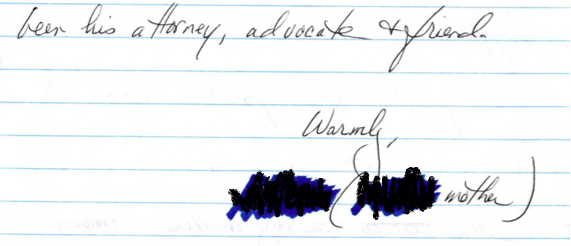 been his attorney, advocate & friend.
Warmly,
( mother)